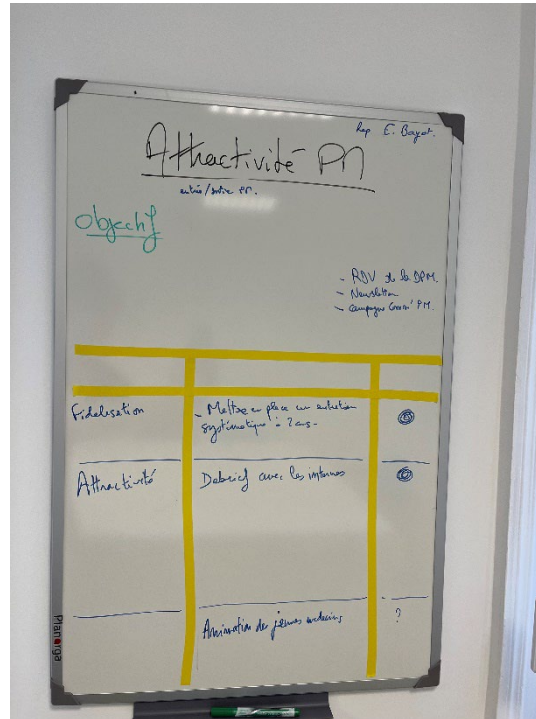 Resp E. Bayet.
Attractivité PM
entrée/sortie PM.
Objectif
- RDV de la DPM.
- Newsletter
- Campagne Comm' PM.
Fidélisation
- Mettre en place un entretien
systématique à 2 ans.
Attractivité
Debrief avec les internes
Animation des jeunes médecins
?
Planorga